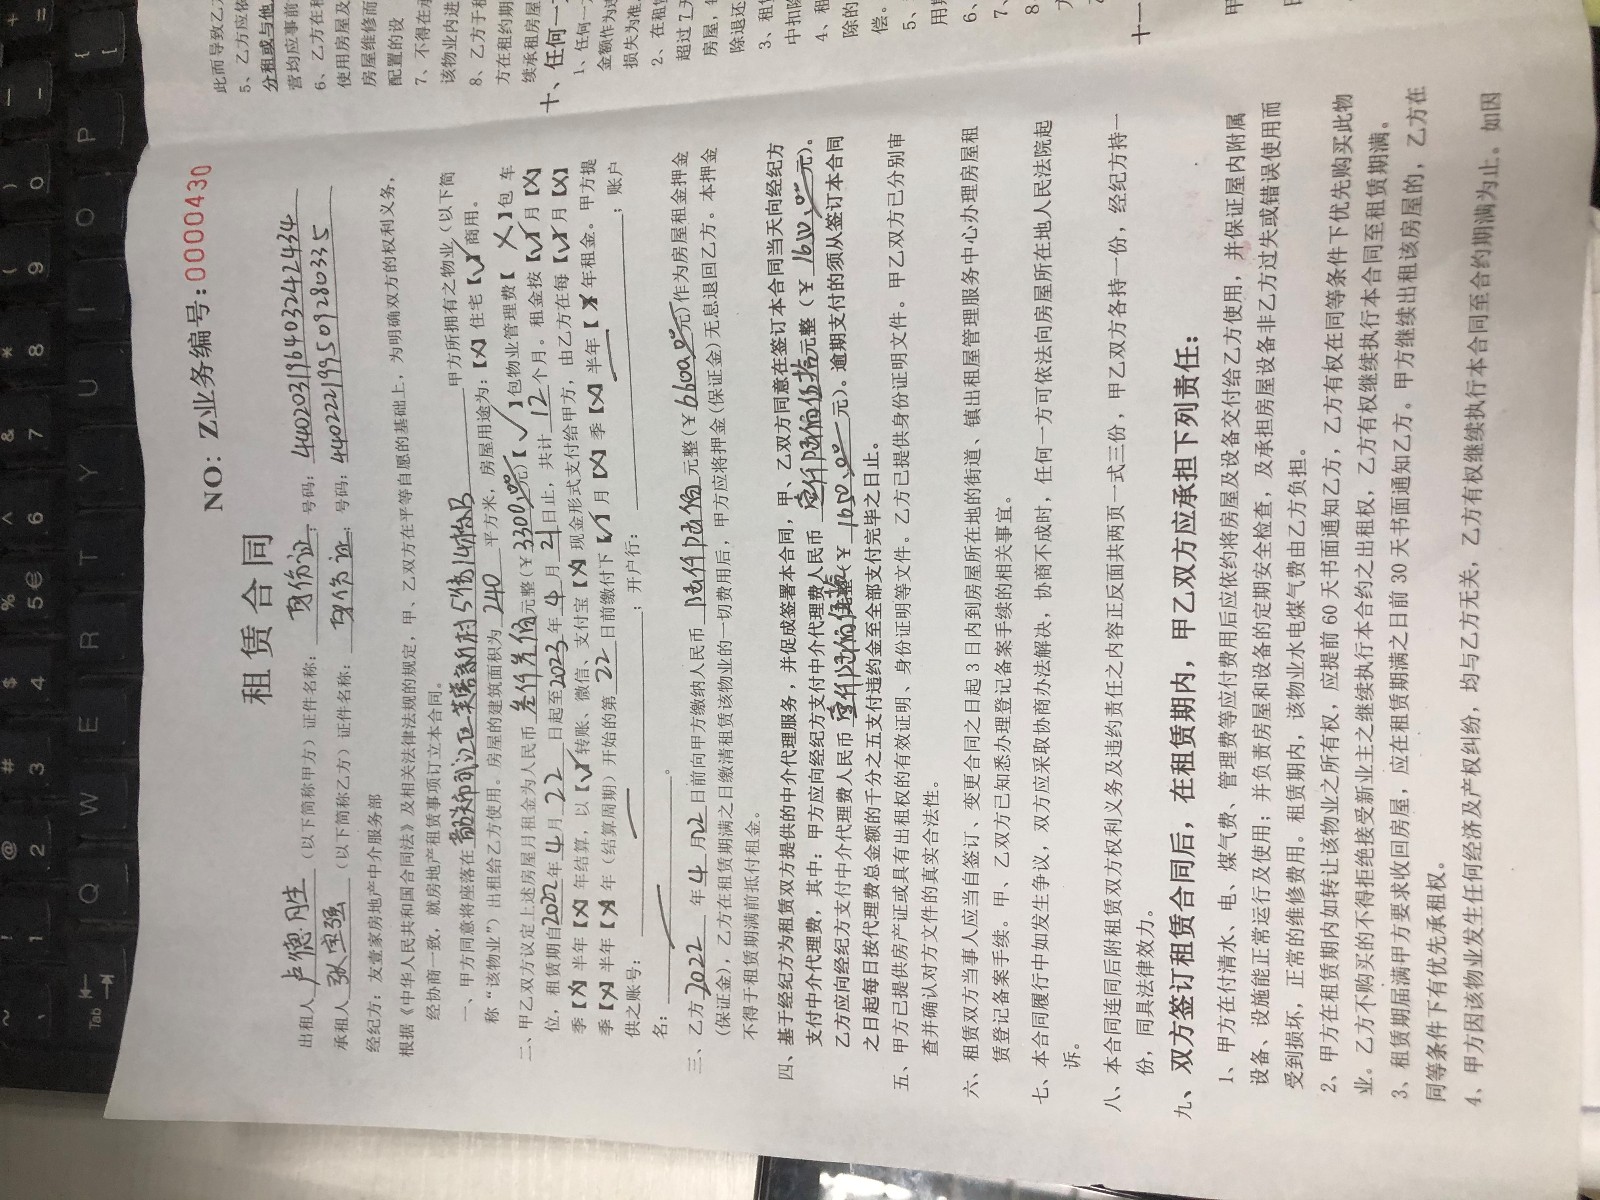 NO: Z业务编号:0000430
租赁合同
出租人 卢德胜 (以下简称甲方) 证件名称: 身份证; 号码: 440203196403242434
承租人 张宝强 (以下简称乙方) 证件名称: 身份证; 号码: 440221199509280335
经纪方: 友壹家房地产中介服务部
根据《中华人民共和国合同法》及相关法律法规的规定, 甲、乙双方在平等自愿的基础上, 为明确双方的权利义务,
经协商一致, 就房地产租赁事项订立本合同。
一、甲方同意将座落在 韶关市浈江区 新村5栋 甲方所拥有之物业 (以下简
称“该物业”) 出租给乙方使用。房屋的建筑面积为 240 平方米, 房屋用途为:【X】住宅【√】商用。
二、甲乙双方议定上述房屋月租金为人民币 叁仟叁佰 元整(¥3300.00元)【√】包物业管理费【X】包 车
位, 租赁期自2022年4月22日起至2023年4月21日止, 共计 12 个月。租金按【√】月【X】
季【X】半年【X】年结算, 以【√】转账、微信、支付宝【X】现金形式支付给甲方, 由乙方在每【√】月【X】
季【X】半年【X】年 (结算周期) 开始的第 22 日前缴付下【√】月【X】季【X】半年【X】年租金。甲方提
供之账号: ; 开户行: ; 账户
名: 。
三、乙方2022年4月22日前向甲方缴纳人民币 陆仟陆佰 元整(¥6600.00元)作为房屋租金押金
(保证金), 乙方在租赁期满之日缴清租赁该物业的一切费用后, 甲方应将押金(保证金)无息退回乙方。本押金
不得于租赁期满前抵付租金。
四、基于经纪方为租赁双方提供的中介代理服务, 并促成签署本合同, 甲、乙双方同意在签订本合同当天向经纪方
支付中介代理费, 其中: 甲方应向经纪方支付中介代理费人民币 壹仟陆佰伍拾元整 (¥ 1650.00元)。
乙方应向经纪方支付中介代理费人民币 壹仟陆佰伍拾元整(¥ 1650.00元)。逾期支付的须从签订本合同
之日起每日按代理费总金额的千分之五支付违约金至全部支付完毕之日止。
五、甲方已提供房产证或具有出租权的有效证明、身份证明等文件。乙方已提供身份证明文件。甲乙双方已分别审
查并确认对方文件的真实合法性。
六、租赁双方当事人应当自签订、变更合同之日起 3 日内到房屋所在地的街道、镇出租屋管理服务中心办理房屋租
赁登记备案手续。甲、乙双方已知悉办理登记备案手续的相关事宜。
七、本合同履行中如发生争议, 双方应采取协商办法解决, 协商不成时, 任何一方可依法向房屋所在地人民法院起
诉。
八、本合同连同后附租赁双方权利义务及违约责任之内容正反面共两页一式三份, 甲乙双方各持一份, 经纪方持一
份, 同具法律效力。
九、双方签订租赁合同后, 在租赁期内, 甲乙双方应承担下列责任:
1、甲方在付清水、电、煤气费、管理费等应付费用后应依约将房屋及设备交付给乙方使用, 并保证屋内附属
设备、设施能正常运行及使用; 并负责房屋和设备的定期安全检查, 及承担房屋设备非乙方过失或错误使用而
受到损坏, 正常的维修费用。租赁期内, 该物业水电煤气费由乙方负担。
2、甲方在租赁期内如转让该物业之所有权, 应提前 60 天书面通知乙方, 乙方有权在同等条件下优先购买此物
业。乙方不购买的不得拒绝接受新业主之继续执行本合约之出租权, 乙方有权继续执行本合同至租赁期满。
3、租赁期届满甲方要求收回房屋, 应在租赁期满之日前 30 天书面通知乙方。甲方继续出租该房屋的, 乙方在
同等条件下有优先承租权。
4、甲方因该物业发生任何经济及产权纠纷, 均与乙方无关, 乙方有权继续执行本合同至合约期满为止。如因
此而导致乙方
5、乙方应依
分租或与他
营均应事前
6、乙方在租
使用房屋及
房屋维修而
配置的设
7、不得在承
该物业内进
8、乙方于租
方在租约期
续承租房屋
十、任何一
1、任何一方
金额作为违
损失为准
2、在租赁
超过 7 天
房屋,
除退还
3、租赁
中扣除
4、租
除的
偿。
5、
用
6、
7、
8
十一
甲
Tab Q W E R T Y U I O P { [
~ 、 ! 1 @ 2 # 3 $ 4 % 5 € ^ 6 & 7 * 8 ( 9 ) 0 — - + =